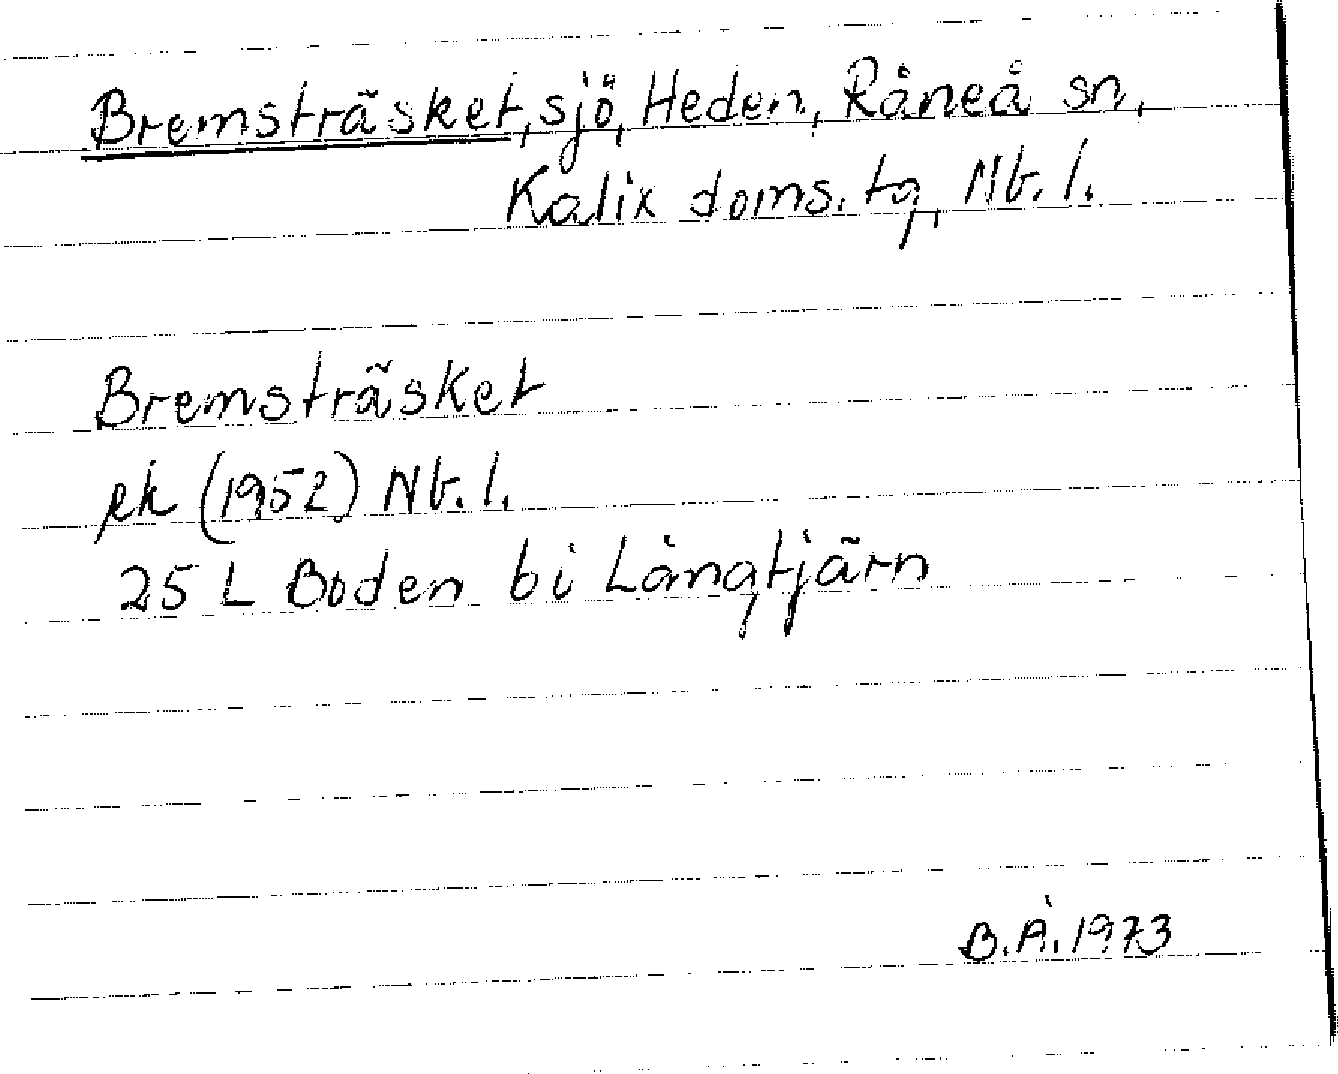 Bremsträsket, sjö, Heden, Råneå sn,
Kalix doms. tg, Nb. l.
Bremsträsket
ek (1952) Nb. l.
25 L Boden bi Långtjärn
B.Å. 1973